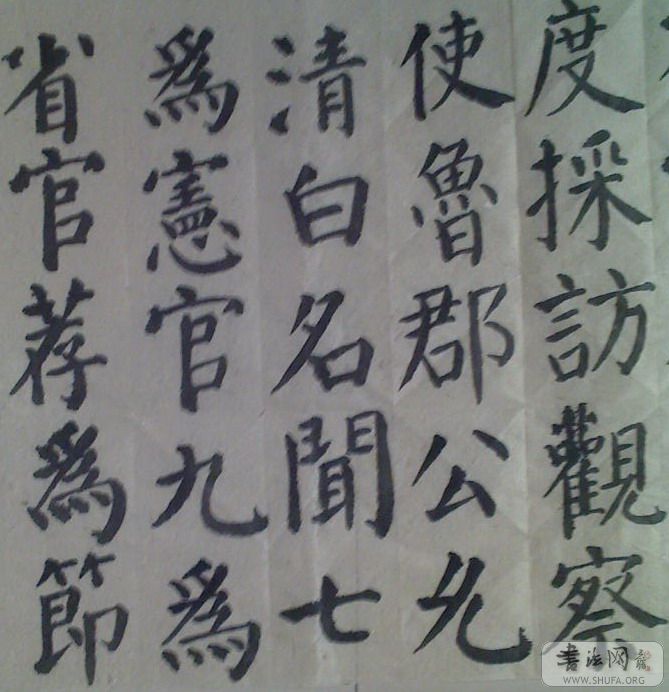 度採訪觀察
使魯郡公允
清白名聞七
爲憲官九爲
省官荐爲節
書法网
WWW.SHUFA.ORG